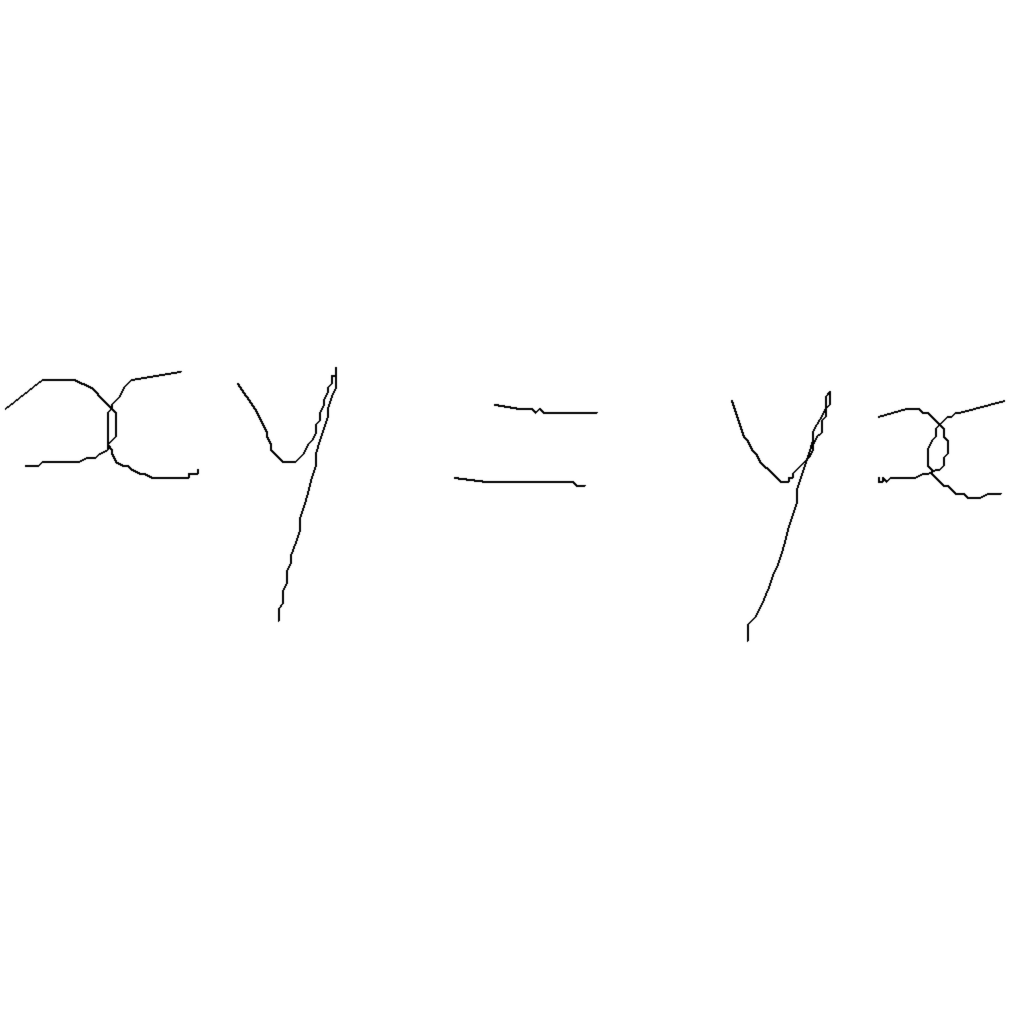 xy = yx